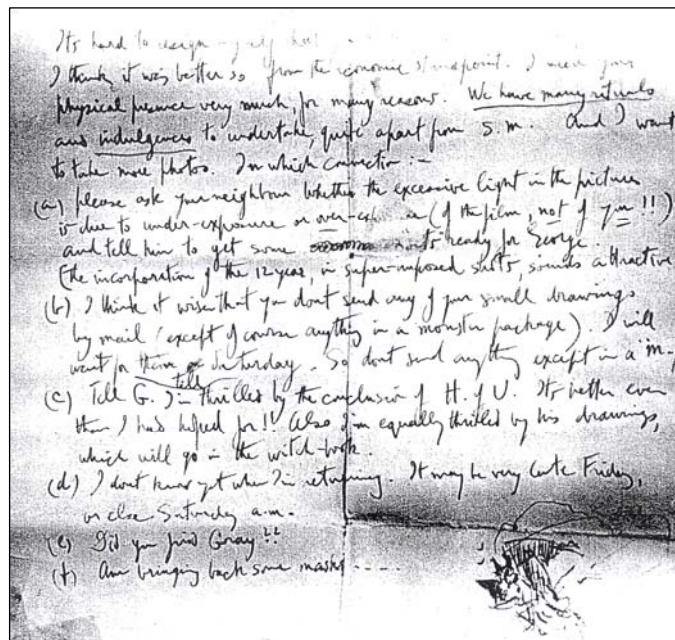 Its hard to resign myself but
I think it was better so from the economic standpoint. I need your
physical presence very much, for many reasons. We have many rituals
and indulgences to undertake, quite apart from S.M. And I want
to take more photos. In which connection :-
(a) please ask your neighbour whether the excessive light in the pictures
is due to under-exposure or over- (of the film, not of you !!)
and tell him to get some ready for George.
(the incorporation of the 12 year, in super-imposed shots, sounds attractive
(b) I think it wiser that you dont send any of your small drawings
by mail (except of course anything in a monster package). I will
wait for them Saturday. So dont send anything except in a m-
(c) Tell G. I'm thrilled by the conclusion of H. of U. Its better even
than I had hoped for!! Also I'm equally thrilled by his drawings,
which will go in the witch-book.
(d) I dont know yet when I'm returning. It may be very late Friday,
or else Saturday a.m.
(e) Did you find Goray ??
(f) Am bringing back some masks ----